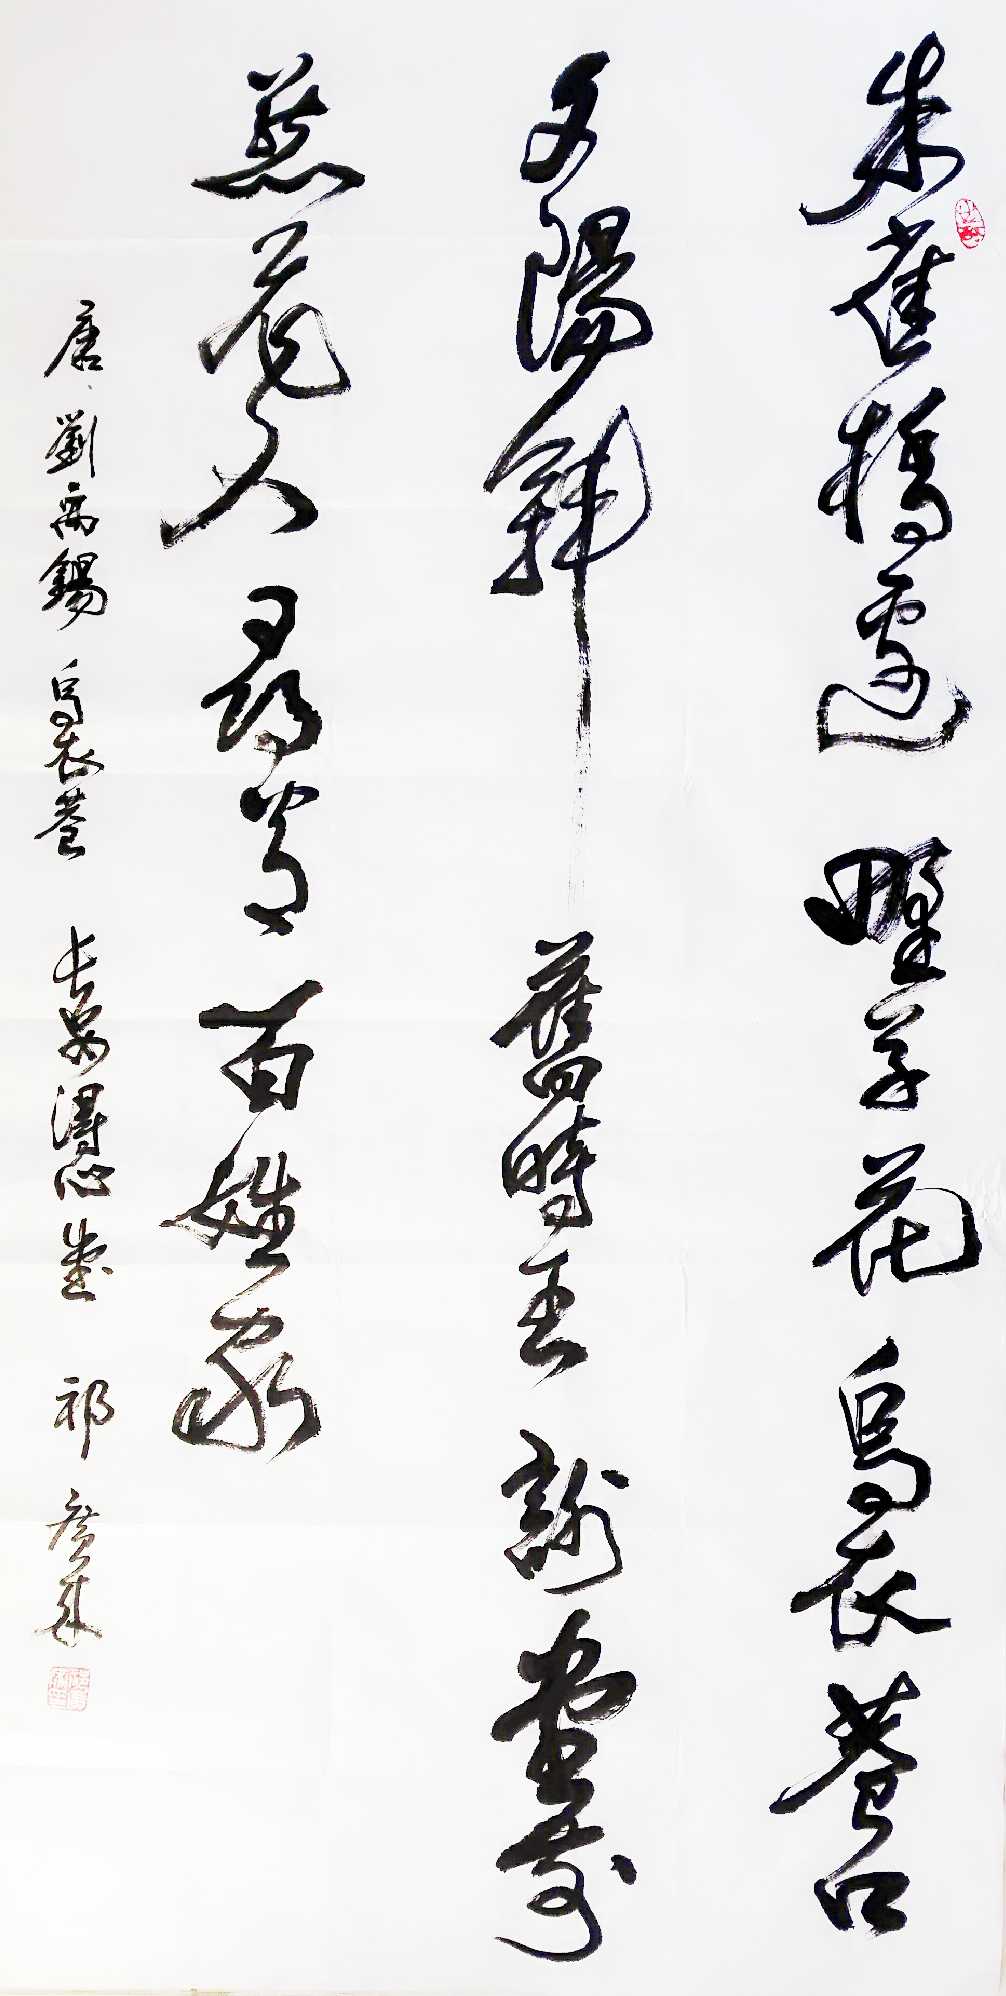 朱雀橋邊 野草花 烏衣巷口
夕陽斜 舊時王 謝堂前
燕飛入 尋常 百姓家
唐 劉禹錫 烏衣巷 長安得心堂 祁 廣